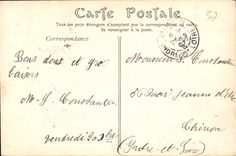 37
Carte Postale
Tous les pays étrangers n'acceptent pas la correspondance au recto.
Se renseigner à la poste.
Correspondance
Bons doux et gros
baisers
M- J. Constantin
vendredi 20
Monsieur J. Constantin
35 Quai Jeanne d'Arc
Chinon
(Indre et Loire)